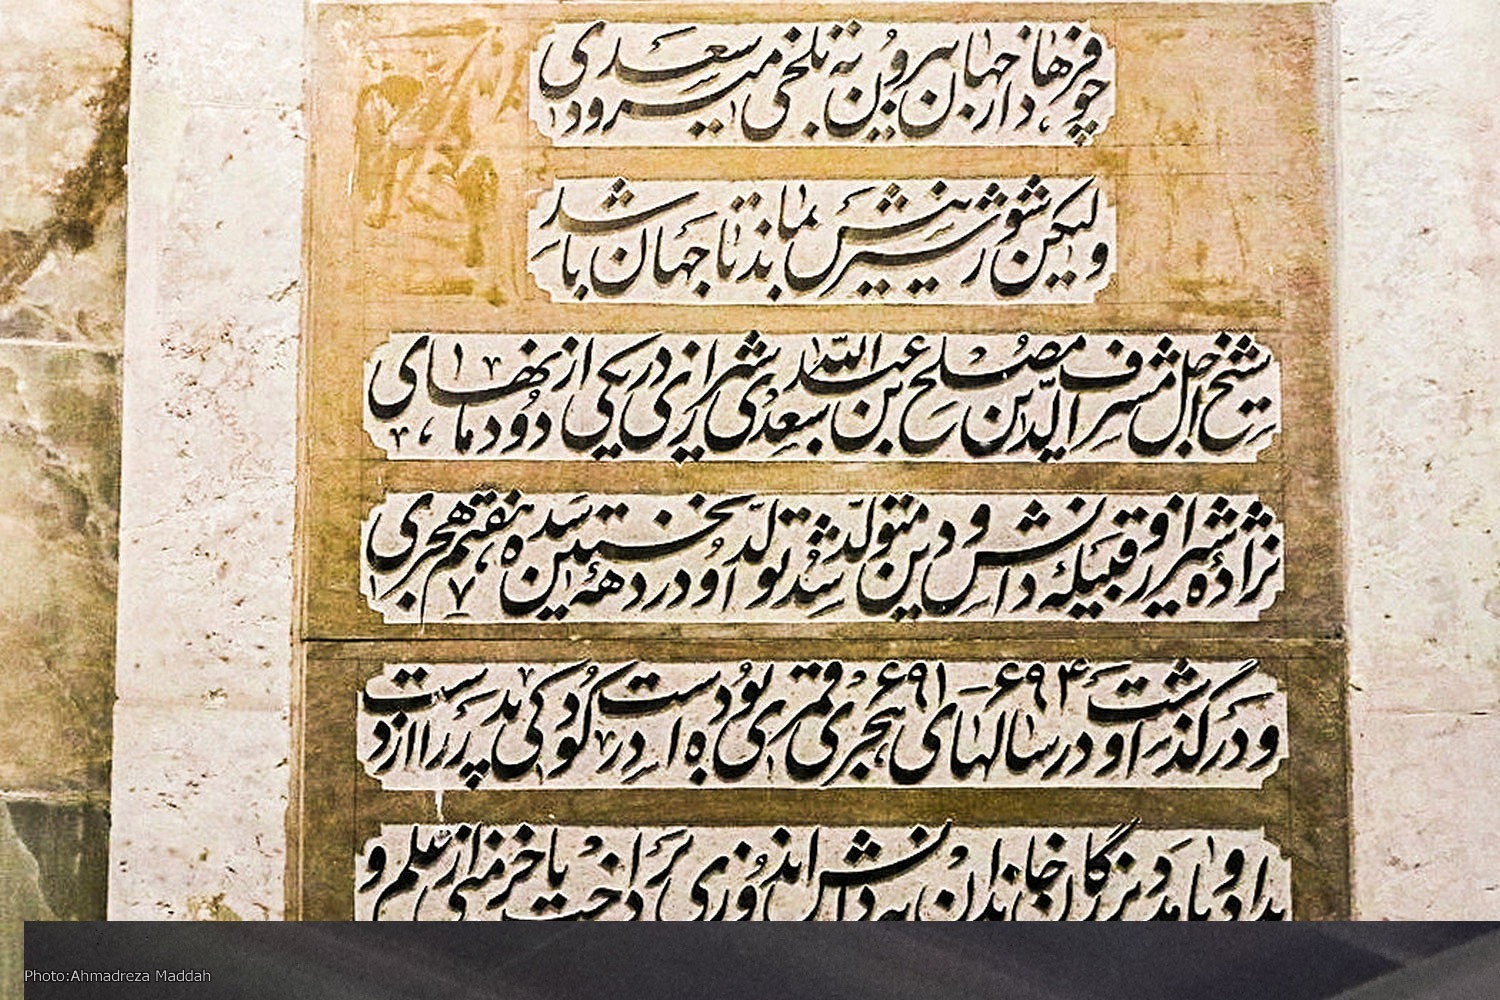 چو فرهاد از جهان بیرون به تلخی میرود سعدی
ولیکن شور شیرینش بماند تا جهان باشد
شیخ اجل مشرف الدین مصلح بن عبدالله سعدی شیرازی در یکی از دودمانهای
نژاده شیراز و قبیلهٔ دانش و دین متولد شد تولد او در دههٔ نخستین سده هفتم هجری
و درگذشت او در سالهای ۶۹۱-۶۹۴ هجری قمری بوده است در کودکی پدر را از دست
داد و با مدد بزرگان خاندان به دانش اندوزی پرداخت با خرمنی از علم و
Photo:Ahmadreza Maddah